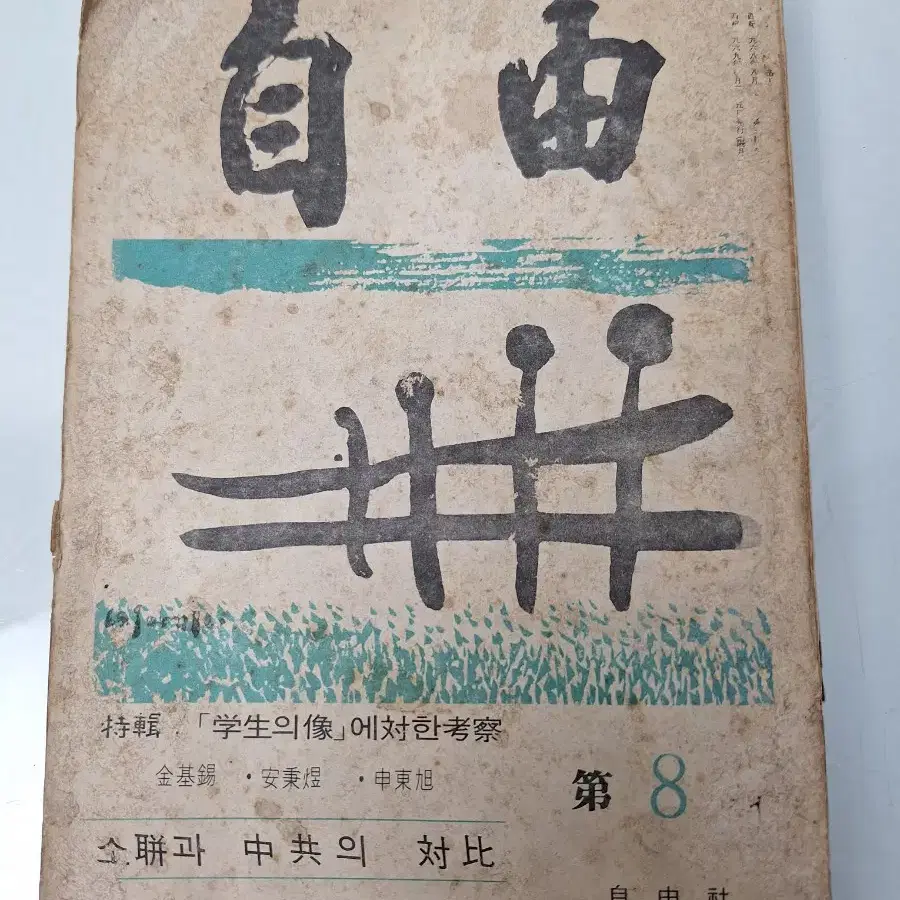 自由
特輯 : 「学生의像」에対한考察
金基錫 · 安秉煜 · 申東旭
第 8
소联과 中共의 対比
自由社